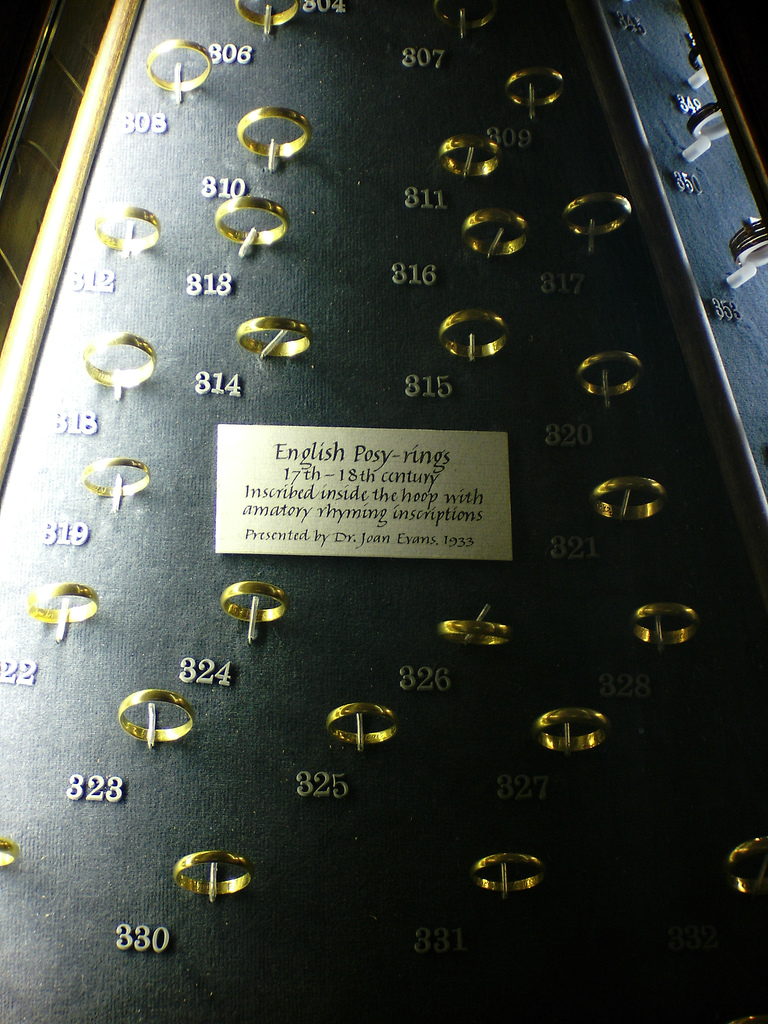 304
306
307
308
309
310
311
312
313
316
317
314
315
318
320
English Posy-rings
17th - 18th century
Inscribed inside the hoop with
amatory rhyming inscriptions
Presented by Dr. Joan Evans, 1933
319
321
322
324
326
328
323
325
327
330
331
332
349
350